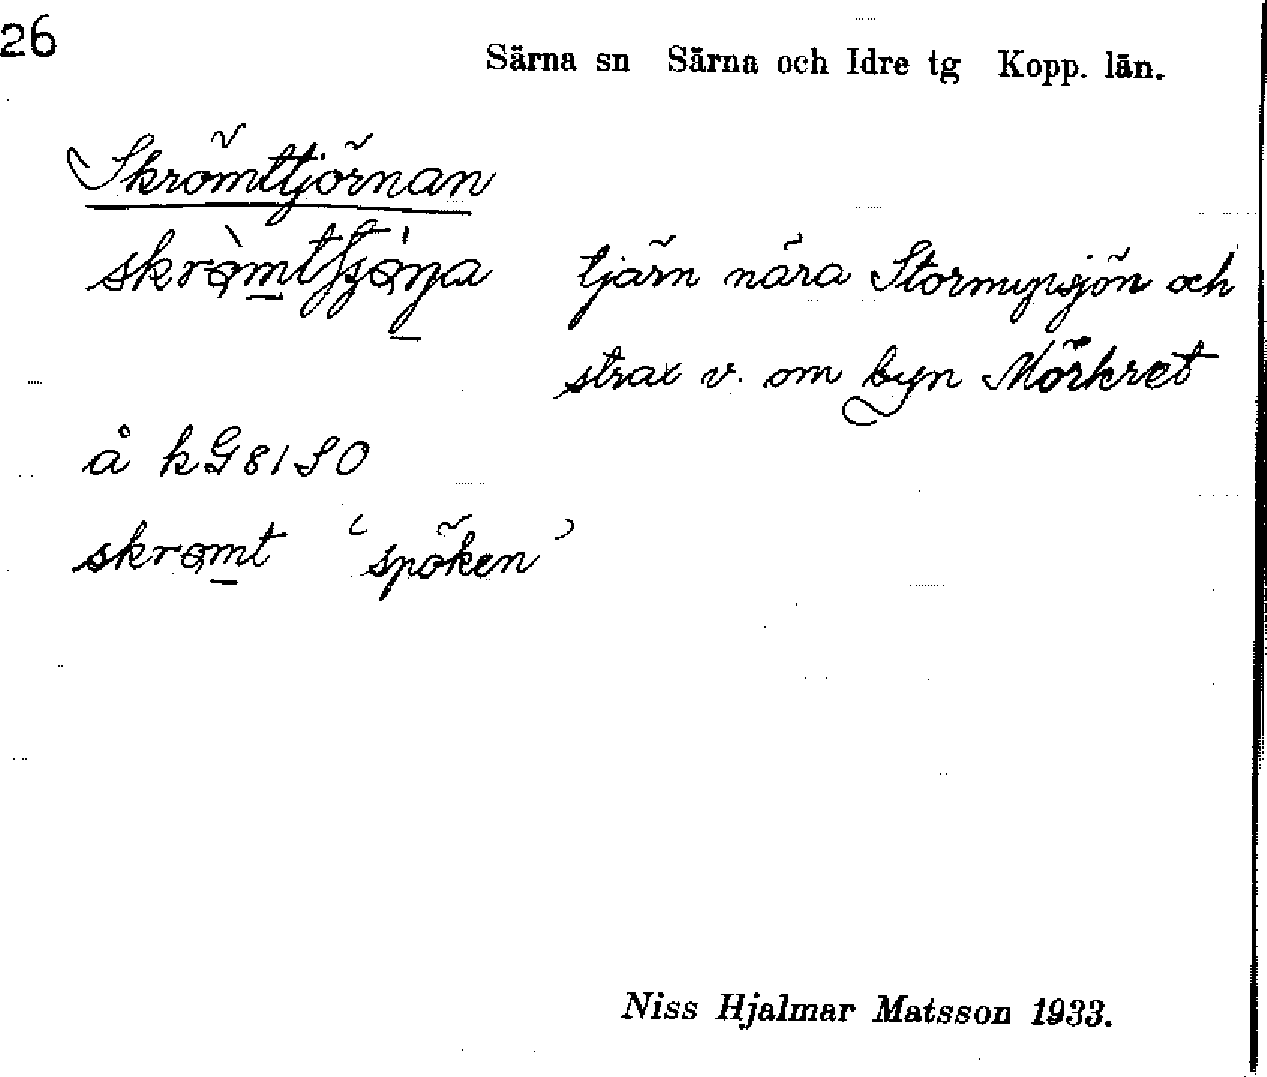 26
Särna sn Särna och Idre tg Kopp. län.
Skrömttjörnan
tjärn nära Stormypsjön och
strax v. om byn Mörkret
å kG81SO
skrømt ‘spöken’
Niss Hjalmar Matsson 1933.